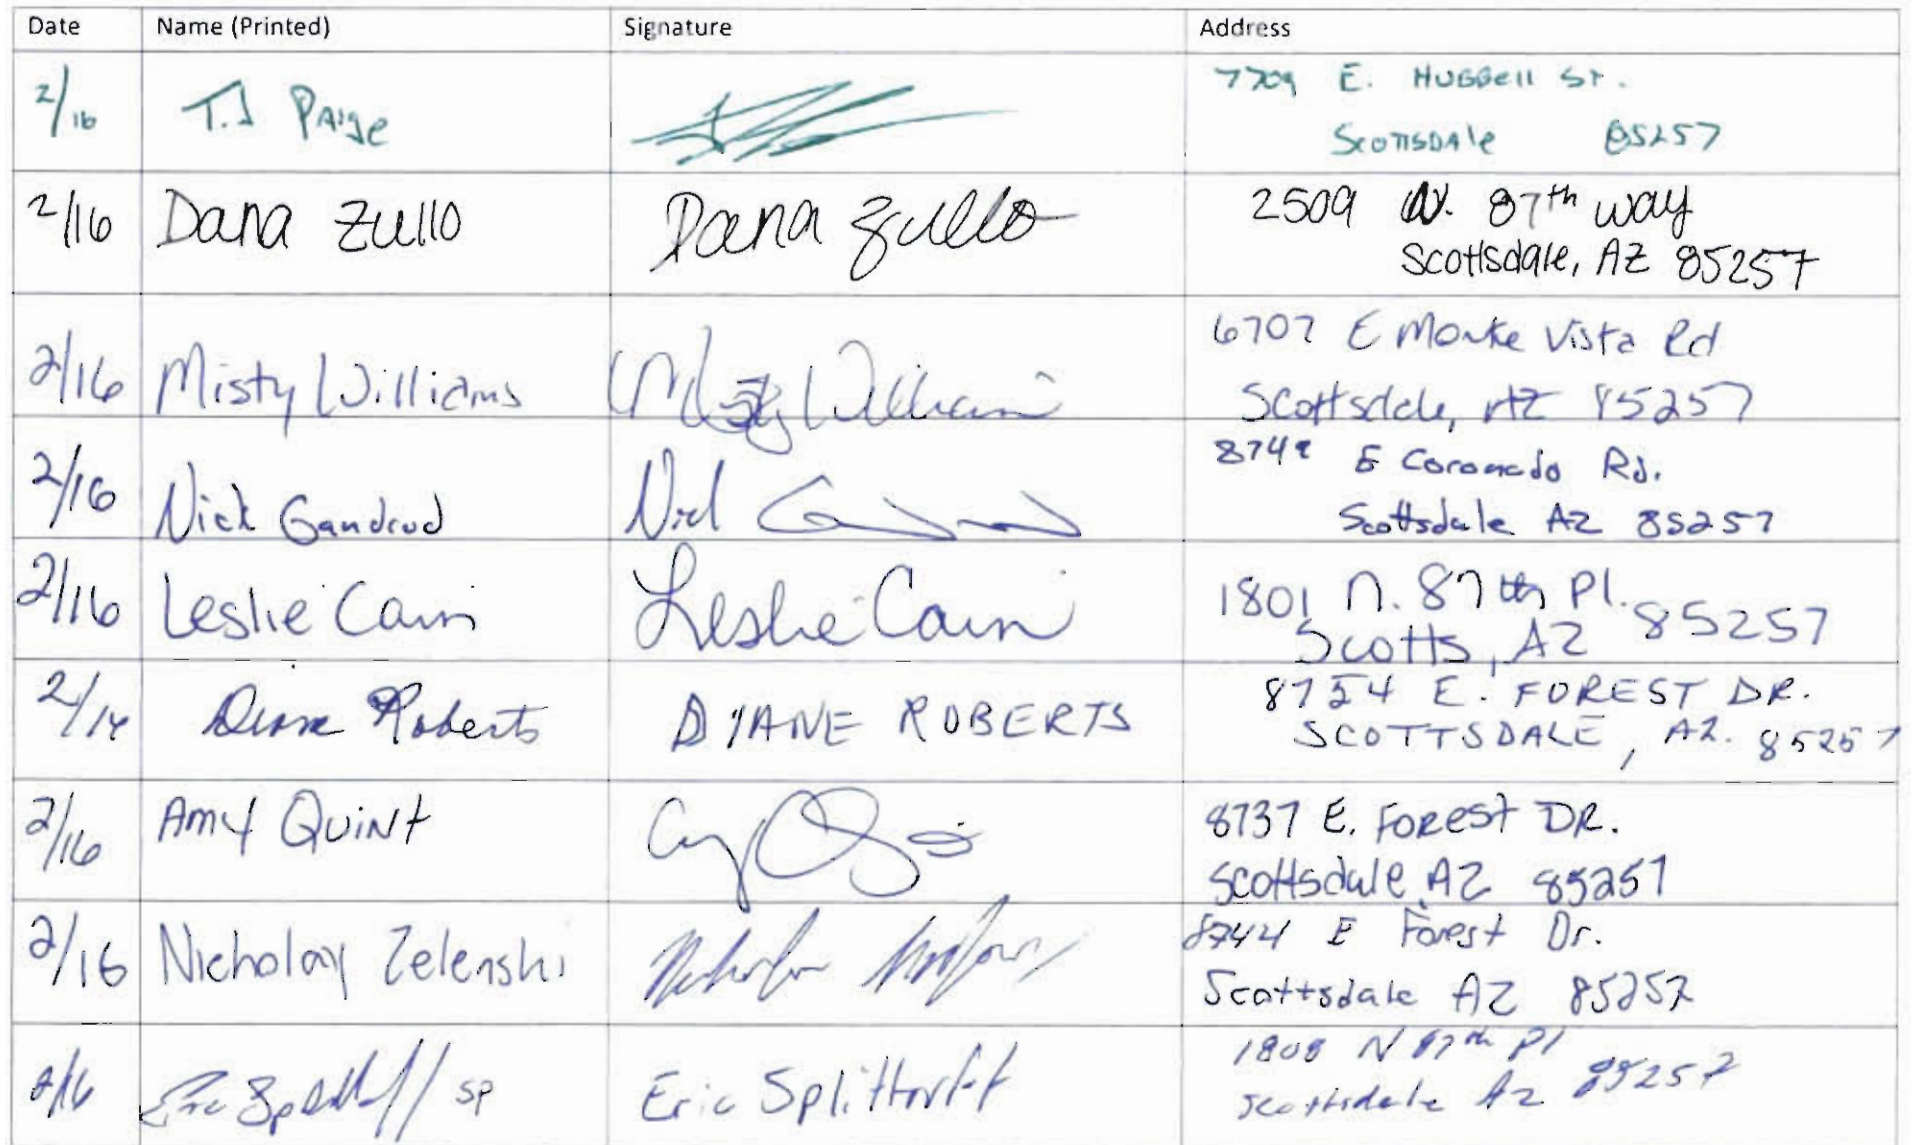 Date Name (Printed) Signature Address
2/16 T.J Paige 7709 E. Hubbell St.
Scottsdale 85257
2/16 Dana Zullo Dana Zullo 2509 N. 87th way
Scottsdale, AZ 85257
2/16 Misty Williams Misty Williams 6707 E Monte Vista Rd
Scottsdale, AZ 85257
2/16 Nick Gandrud Nick 8748 E Coronado Rd.
Scottsdale AZ 85257
2/16 Leslie Cain Leslie Cain 1801 N. 87th Pl.
Scotts, AZ 85257
2/16 Diane Roberts DIANE ROBERTS 8754 E. FOREST DR.
SCOTTSDALE, AZ. 85257
2/16 Amy Quint 8737 E. Forest DR.
Scottsdale, AZ 85257
2/16 Nicholay Zelenski 8744 E Forest Dr.
Scottsdale AZ 85257
2/16 SP Eric Splittorff 1808 N 87th Pl
Scottsdale Az 85257